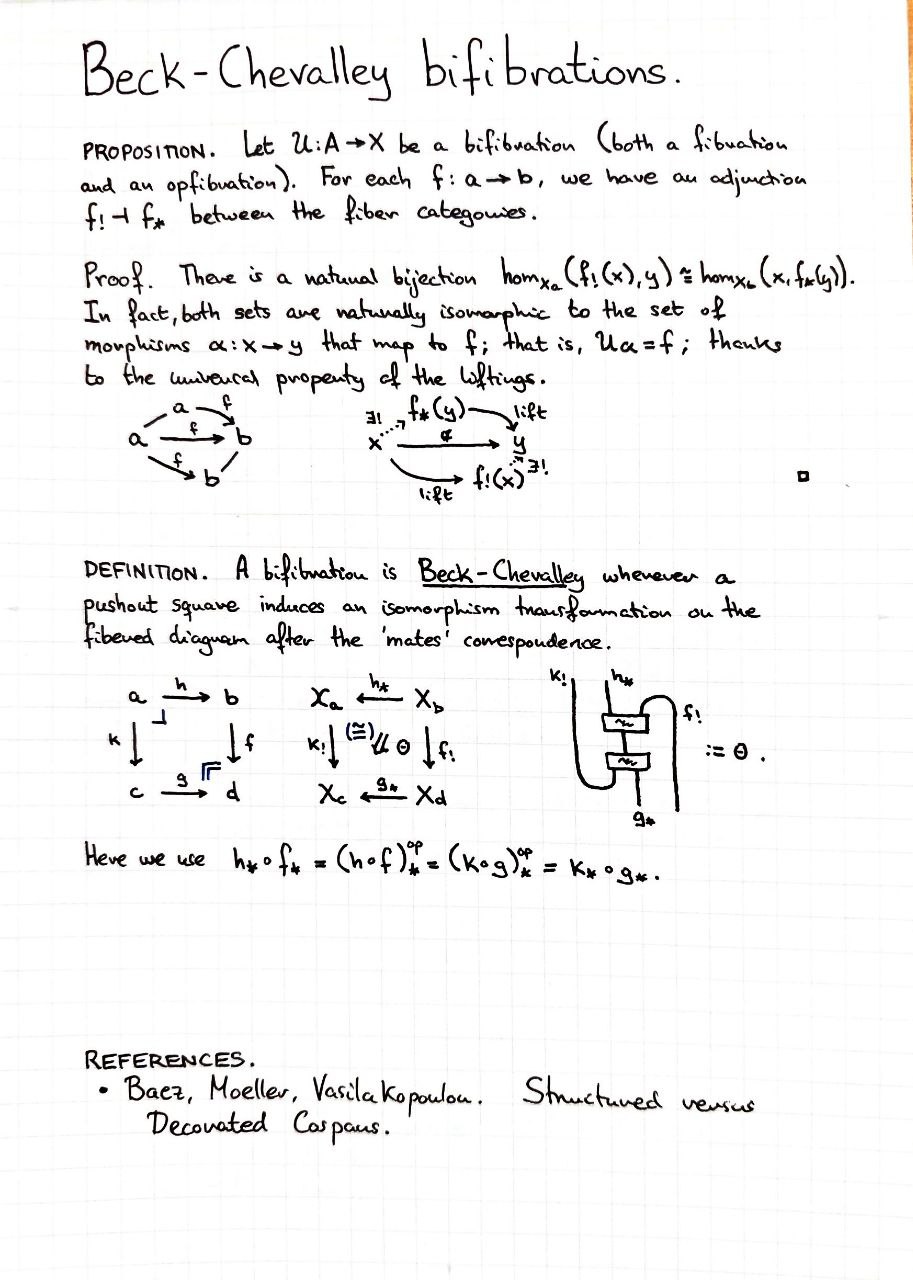 Beck-Chevalley bifibrations.
PROPOSITION. Let U:A→X be a bifibration (both a fibration
and an opfibration). For each f: a→b, we have an adjunction
f! ⊣ f* between the fiber categories.
Proof. There is a natural bijection homXa(f!(x),y) ≅ homXb(x,f*(y)).
In fact, both sets are naturally isomorphic to the set of
morphisms α:x→y that map to f; that is, Uα=f; thanks
to the universal property of the liftings.
a f
a f b
f b
∃! f*(y) lift
x α y
lift f!(x) ∃!
□
DEFINITION. A bifibration is Beck-Chevalley whenever a
pushout square induces an isomorphism transformation on the
fibered diagram after the 'mates' correspondence.
a h→ b Xa ←h* Xb
k↓ ↓f k!↓ (≅)⇙ θ ↓f!
c g→ d Xc ←g* Xd
k! h* f!
~
~ := θ.
g*
Here we use h*∘f* = (h∘f)*ᵒᵖ = (k∘g)*ᵒᵖ = k*∘g*.
REFERENCES.
• Baez, Moeller, Vasilakopoulou. Structured versus
Decorated Cospans.